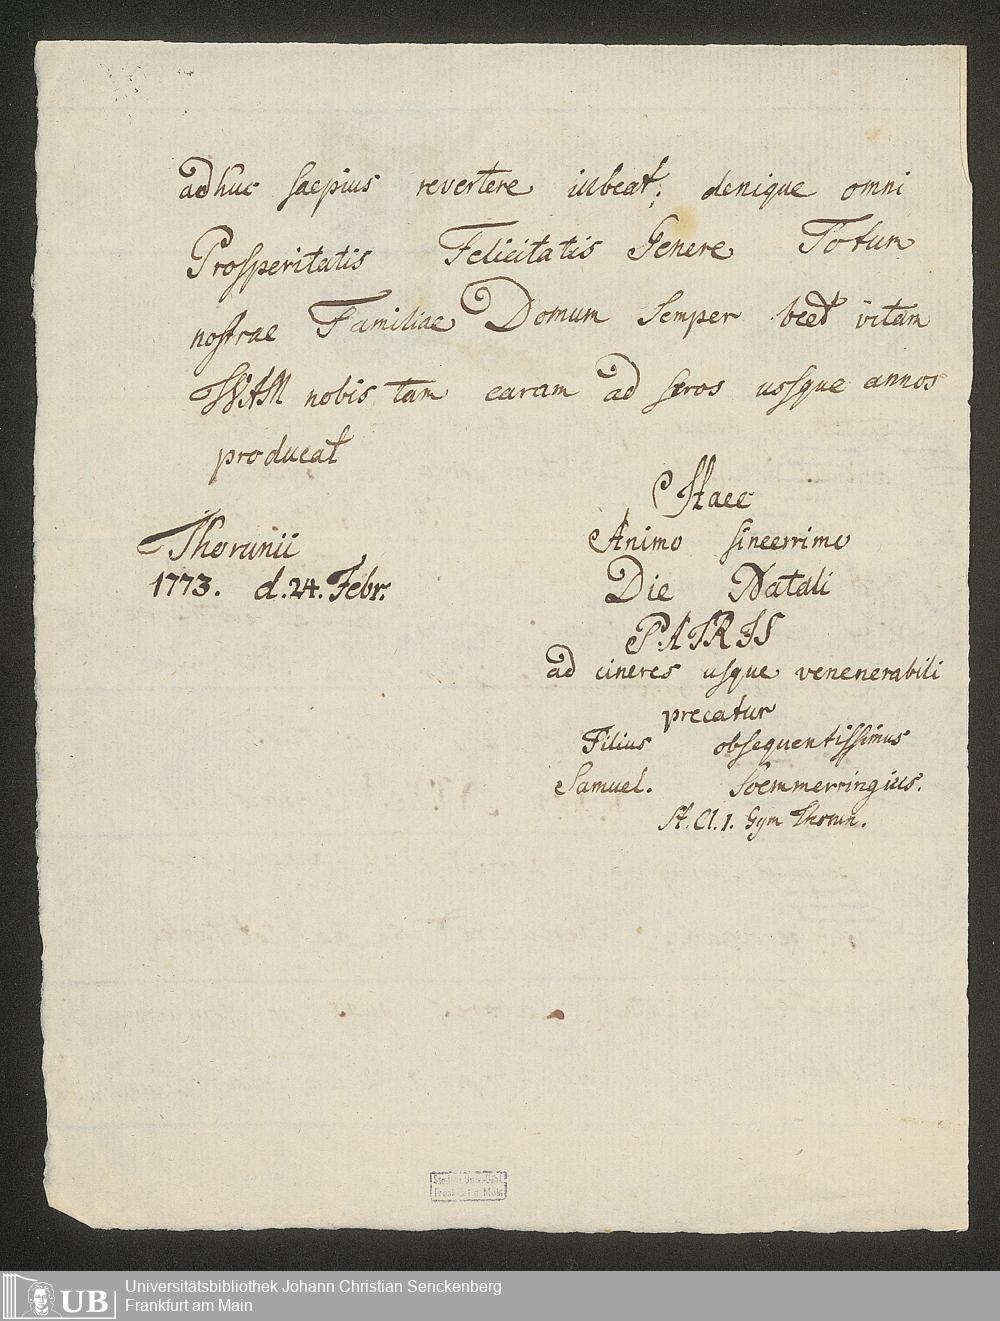 adhuc saepius revertere iubeat; denique omni
Prosperitatis Felicitatis Genere Totum
nostrae Familiae Domum Semper beet vitam
TVAM nobis tam caram ad seros usque annos
producat
Haec
Thorunii
Animo sincerrimo
1773. d. 24. Febr.
Die Natali
PATRIS
ad cineres usque venenerabili
precatur
Filius obsequentissimus
Samuel. Soemmerringius.
Cl. 1. Gym Thorun.
Frankfurt a. Main
UB
Universitätsbibliothek Johann Christian Senckenberg
Frankfurt am Main